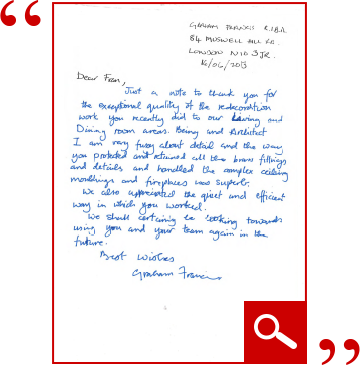 GRAHAM FRANCIS R.I.B.A
84 MUSWELL HILL RD.
LONDON N10 3JR.
16/06/2013
Dear Fran,
Just a note to thank you for
the exceptional quality of the redecoration
work you recently did to our Living and
Dining room areas. Being and Architect
I am very fussy about detail and the way
you protected and retained all the brass fittings
and details and handled the complex ceiling
mouldings and fireplaces was superb.
We also appreciated the quiet and efficient
way in which you worked.
We shall certainly be looking towards
using you and your team again in the
future.
Best Wishes
Graham Francis